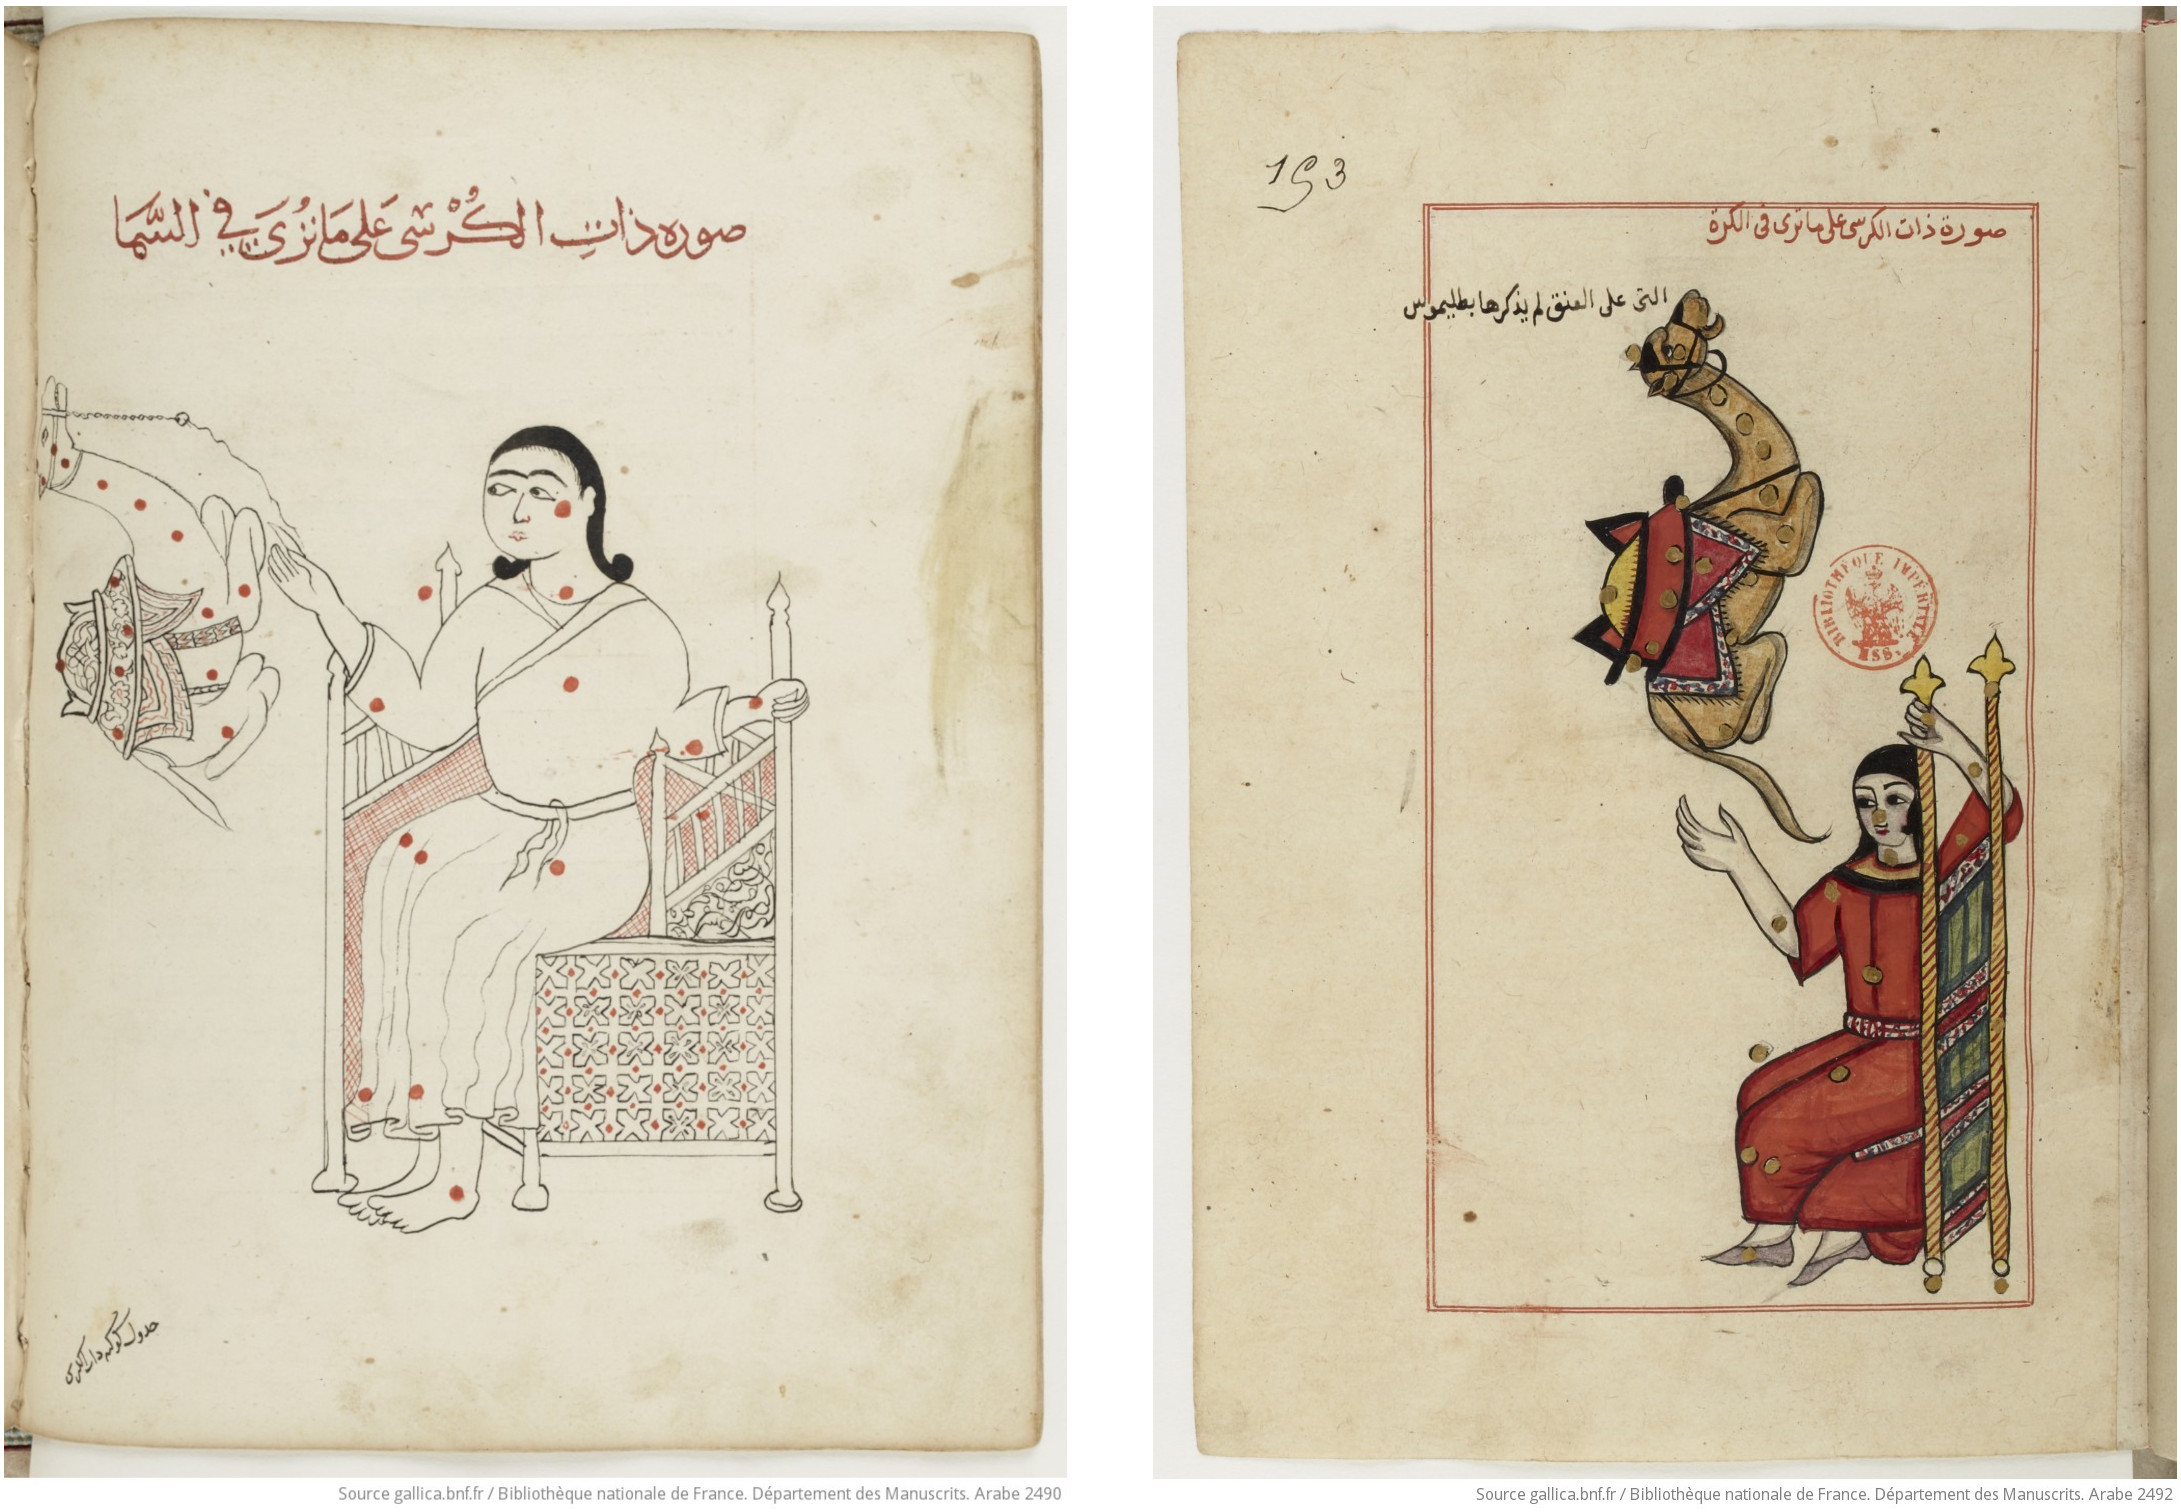 صوره ذات الكُرْسَى عَلى مَا تُرَىَ فِي السَّمَا
جدول كوكبه ذات الكرسى
Source gallica.bnf.fr / Bibliothèque nationale de France. Département des Manuscrits. Arabe 2490
193
صورة ذات الكرسى على ما ترى فى الكرة
التى على العنق لم يذكرها بطليموس
BIBLIOTHÈQUE IMPÉRIALE
MSS.
Source gallica.bnf.fr / Bibliothèque nationale de France. Département des Manuscrits. Arabe 2492